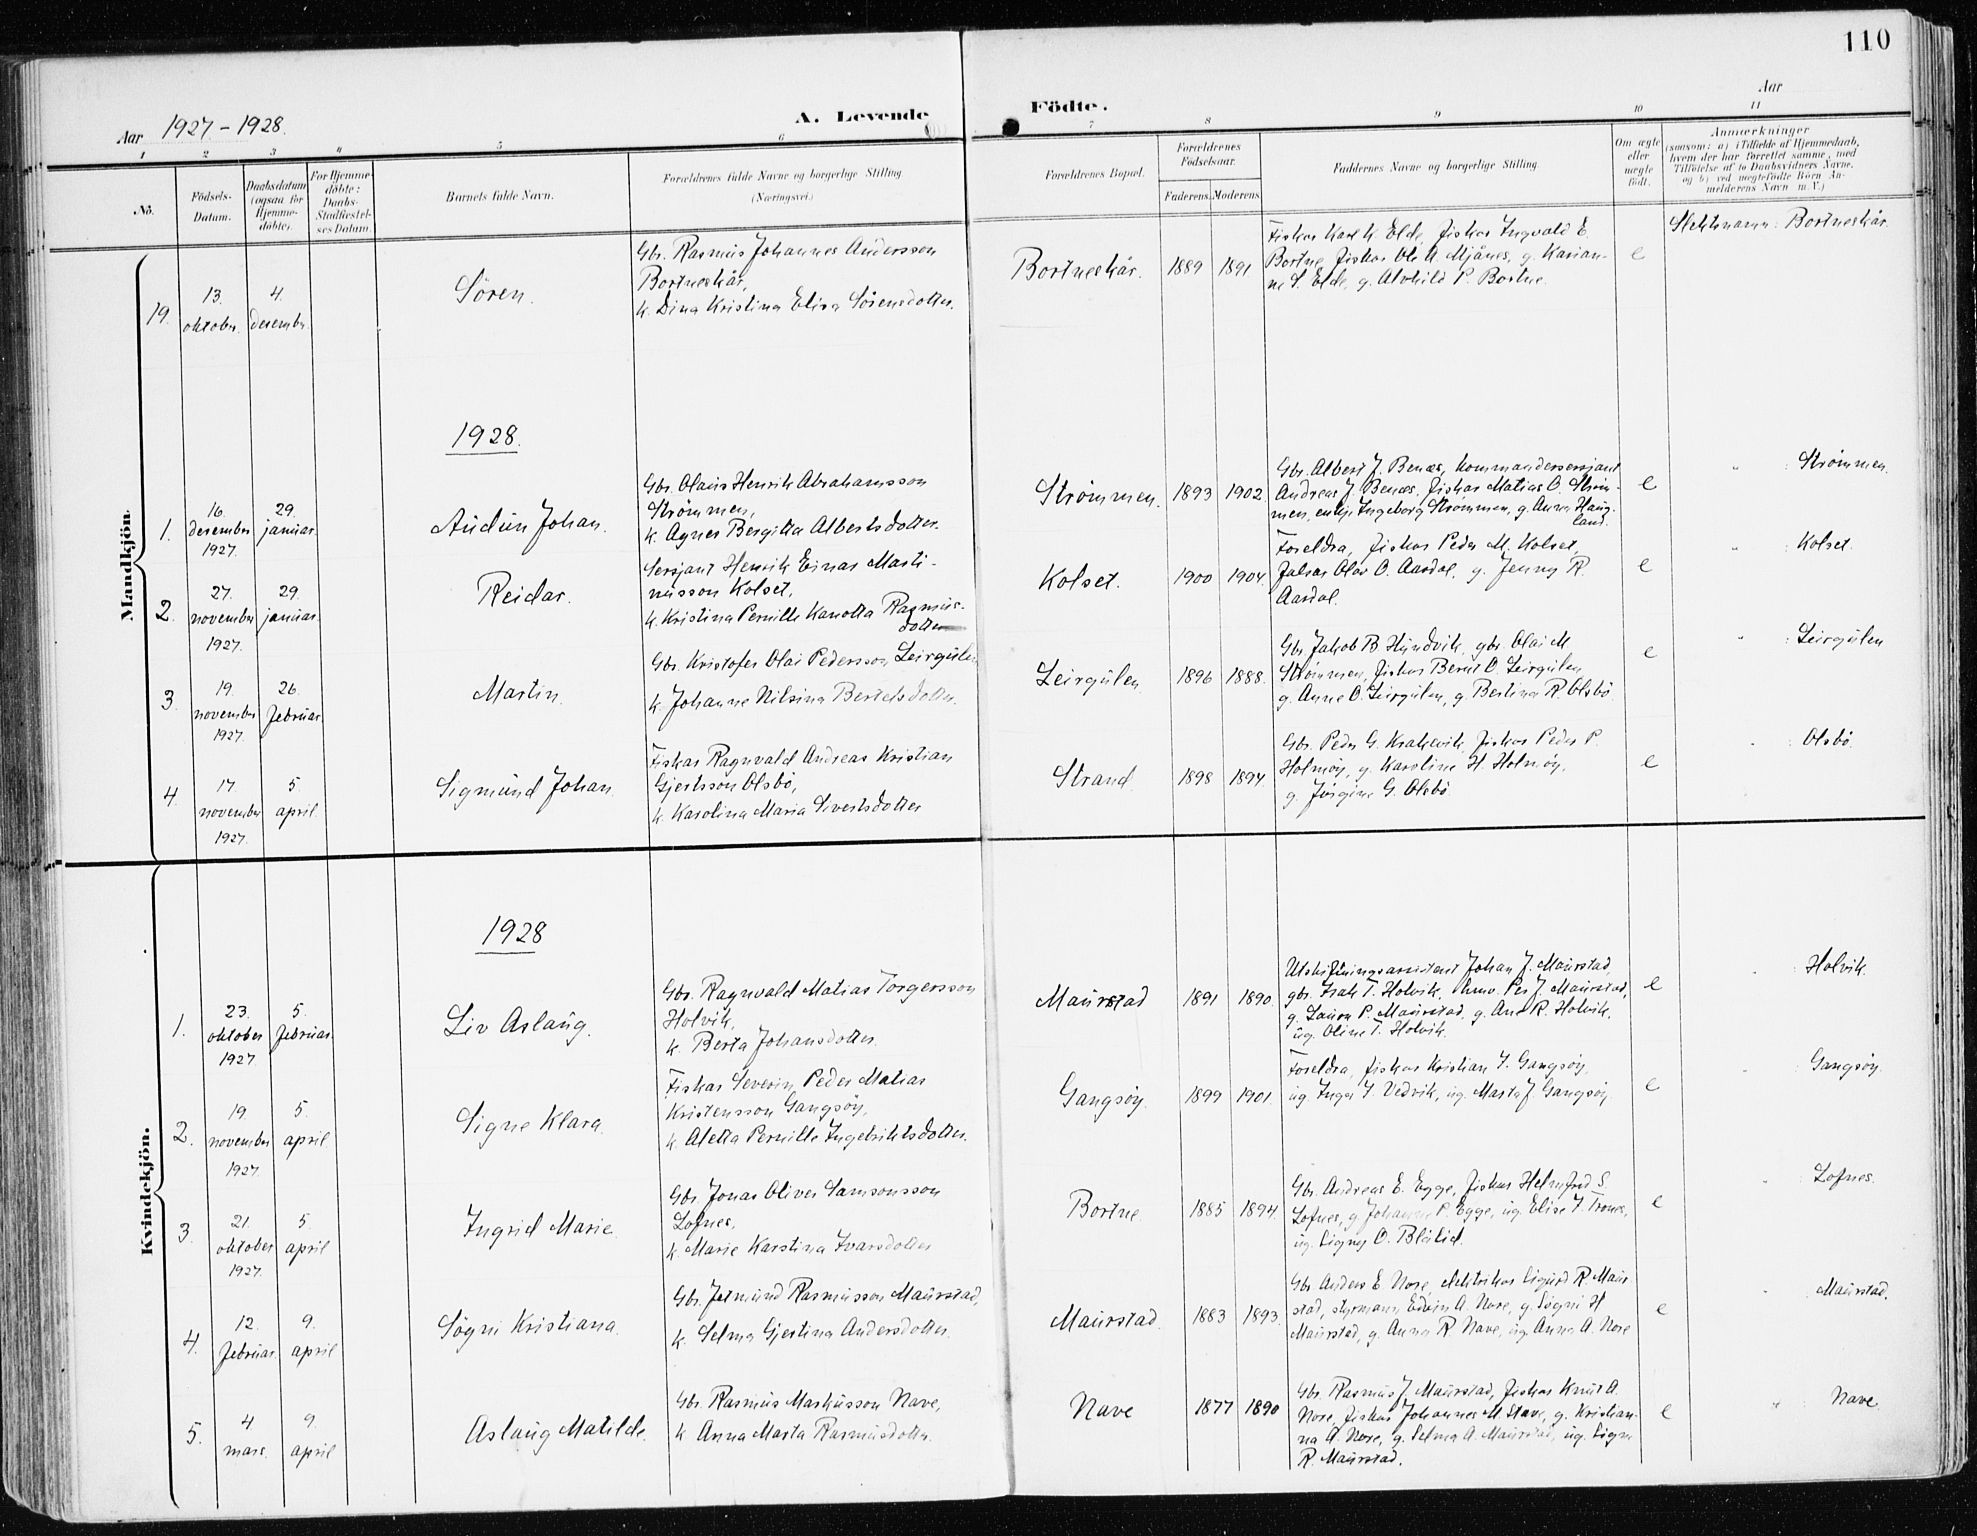 110
Aar 1927 - 1928.
A. Levende
Födte.
Aar
1 2 3 4 5 6 7 8 9 10 11
No.
Födsels-
Datum.
Daabsdatum
(ogsaa for
Hjemme-
döbte).
For Hjemme-
döbte:
Daabs-
Stadfæstel-
ses Datum.
Barnets fulde Navn.
Forældrenes fulde Navne og borgerlige Stilling
(Næringsvei.)
Forældrenes Bopæl.
Forældrenes
Födselsaar.
Faderens. Moderens.
Faddernes Navne og borgerlige Stilling
Om ægte
eller
uægte
født.
Anmærkninger
(saasom: a) i Tilfælde af Hjemmedaab,
hvem der har forrettet samme, med
Tilföielse af to Daabsvidners Navne,
og b) ved uægtefödte Börn An-
melderens Navn m. V.)
Mandkjön.
19.
13.
oktober.
4.
desember.
Sören.
Gbr. Rasmus Johannes Andersson
Bortneskår,
k. Dina Kristina Elisa Sörensdotter.
Bortneskår.
1889 1891
Fiskar Karl K. Elde, fiskar Ingvald E.
Bortne, fiskar Ole A. Mjånes, g. Karian-
ne S. Elde, g. Alvhild P. Bortne.
e
Slektsnamn: Bortneskår.
1928.
1.
16.
desember
1927.
29.
januar.
Audun Johan.
Gbr. Olaus Henrik Abrahamsson
Strømmen,
k. Agnes Bergitta Albertsdotter.
Strømmen.
1893 1902
Gbr. Albert J. Benæs, kommandersersjant
Andreas J. Benæs, fiskar Matias O. Strøm-
men, enkje Ingeborg Strømmen, g. Anna Haug-
land.
e
" : Strømmen.
2.
27.
november
1927.
29.
januar.
Reidar.
Sersjant Henrik Einar Marti-
nusson Kolset,
k. Kristina Pernille Kanotta Rasmus-
dotter
Kolset.
1900 1904.
Foreldra, fiskar Peder M. Kolset,
Olav O. Aardal, g. Jenny R.
Aardal.
e
" : Kolset.
3.
19.
november
1927.
26.
februar.
Martin.
Gbr. Kristofer Olai Pedersson Leirgulen
k. Johanne Nilsina Bertelsdotter.
Leirgulen
1896 1888.
Gbr. Jakob B. Hundvik, gbr. Olai M.
Strømmen, fiskar Bernt O. Leirgulen
g. Anne O. Leirgulen, g. Bertina R. Olsbö.
e
" : Leirgulen
4.
17.
november
1927.
5.
april.
Sigmund Johan.
Fiskar Ragnvald Andreas Kristian
Gjertsson Olsbö,
k. Karolina Maria Sivertsdotter
Strand.
1898 1894.
Gbr. Peder G. Krakevik, fiskar Peder P.
Holmöy, g. Karoline H. Holmöy,
g. Jörgine G. Olsbö.
e
" : Olsbö.
Kvindekjön.
1928
1.
23.
oktober
1927.
5.
februar.
Liv Aslaug.
Gbr. Ragnvald Matias Torgersson
Holvik,
k. Berta Johansdotter.
Maurstad
1891 1890.
Utskiftningsassistent Johan J. Maurstad,
gbr. Isak T. Holvik, Per J. Maurstad,
g. Laura P. Maurstad, g. Ane R. Holvik,
ug. Oline T. Holvik.
e
" : Holvik.
2.
19.
november
1927.
5.
april
Signe Klara.
Fiskar Severin Peder Matias
Kristensson Gangsöy,
k. Aletta Pernille Ingebriktsdotter.
Gangsöy.
1899 1901.
Foreldra, fiskar Kristian I. Gangsöy,
ug. Inga I. Vedvik, ug. Marta J. Gangsöy.
e
" : Gangsöy.
3.
21.
oktober
1927.
5.
april
Ingrid Marie.
Gbr. Jonas Oliver Samsonsson
Lofnes,
k. Marie Karstina Ivarsdotter
Bortne
1885 1894.
Gbr. Andreas E. Egge, fiskar Helmfred S.
Lofnes, g. Johanne P. Egge, ug. Elise I.
ug. Signy O. Blålid.
e
" : Lofnes.
4.
12.
februar.
9.
april
Sögni Kristiana.
Gbr. Jetmund Rasmusson Maurstad,
k. Selma Gjertina Andersdotter.
Maurstad.
1883 1893.
Gbr. Anders E. Nore, elektrikar Sigurd R. Maur-
stad, styrmann Edvin A. Nore, g. Sögni H.
Maurstad, g. Anna R. Nave, ug. Anna A. Nore
e
" : Maurstad.
5.
4
mars.
9.
april
Aslaug Matilde.
Gbr. Rasmus Markusson Nave,
k. Anna Marta Rasmusdotter.
Nave
1877 1890
Gbr. Rasmus J. Maurstad, fiskar Knut A.
Nore, fiskar Johannes M. Stave, g. Kristian-
na A. Nore, g. Selma A. Maurstad, ug. Signe
R. Maurstad.
e
" : Nave.